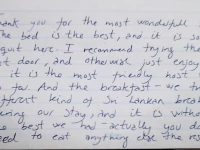 hank you for the most wonderfull
The bed is the best, and it is so
quit here. I recommend trying the
at door, and otherwise just enjoy
it is the most friendly host
far. And the breakfast - we tr
fferent kind of Sri Lankan break
uring our stay, and it is witho
e best we had - actually you do
eed to eat anything else the res